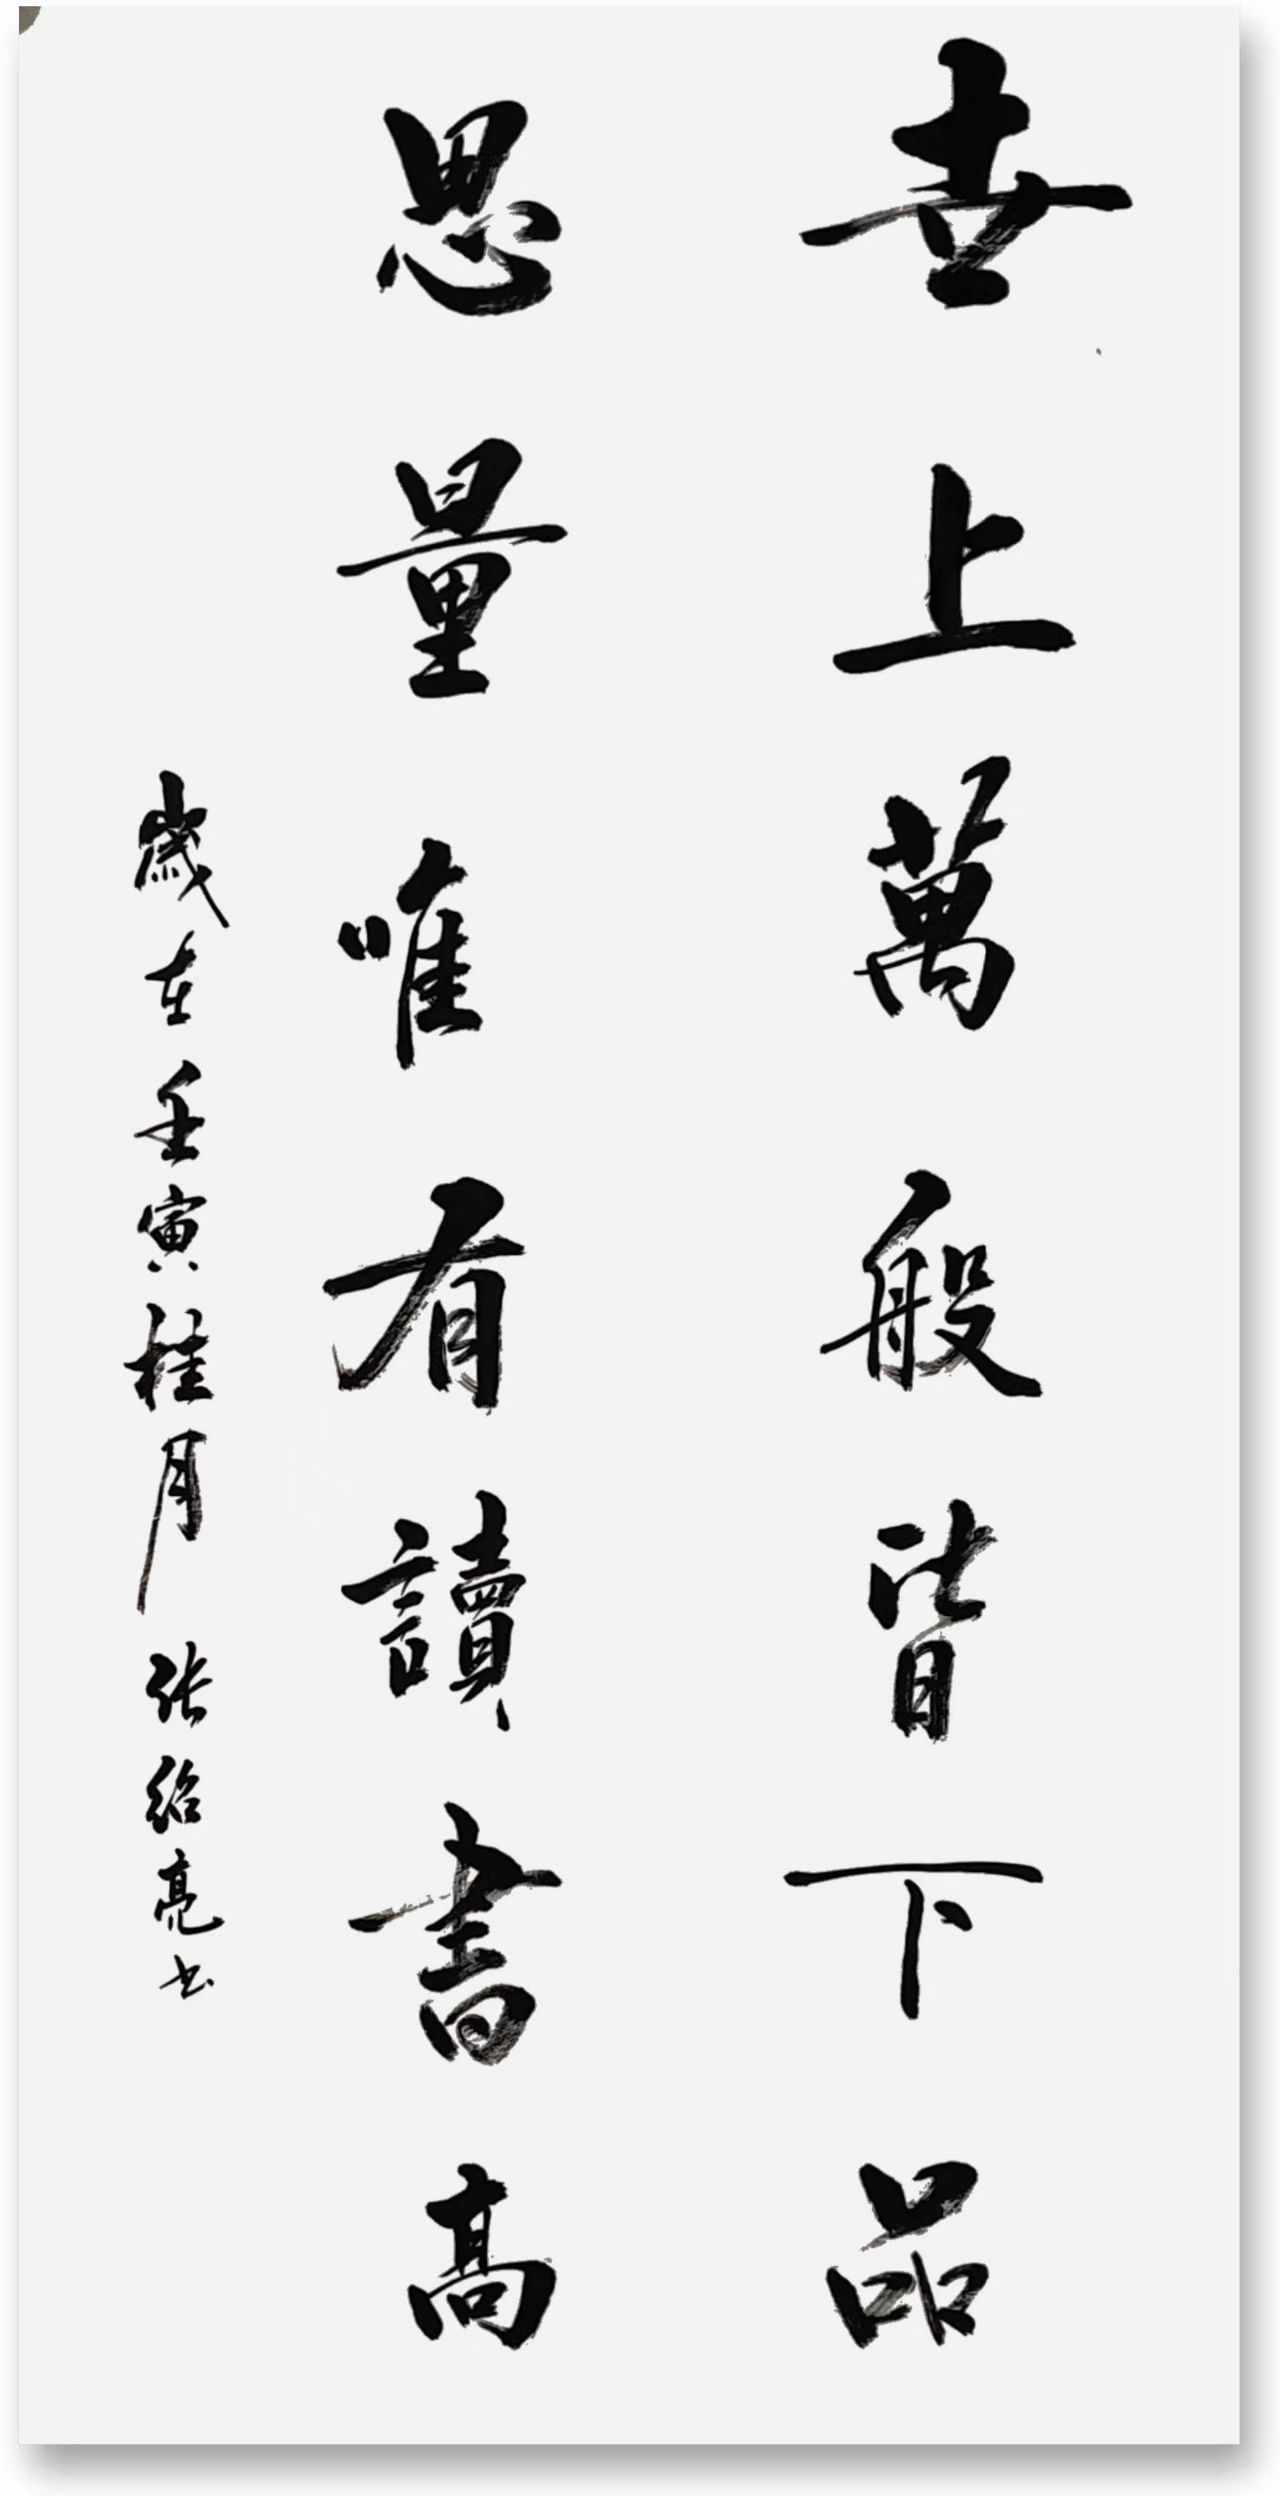 世上萬般皆下品
思量唯有讀書高
歲在壬寅桂月 张绍亮书